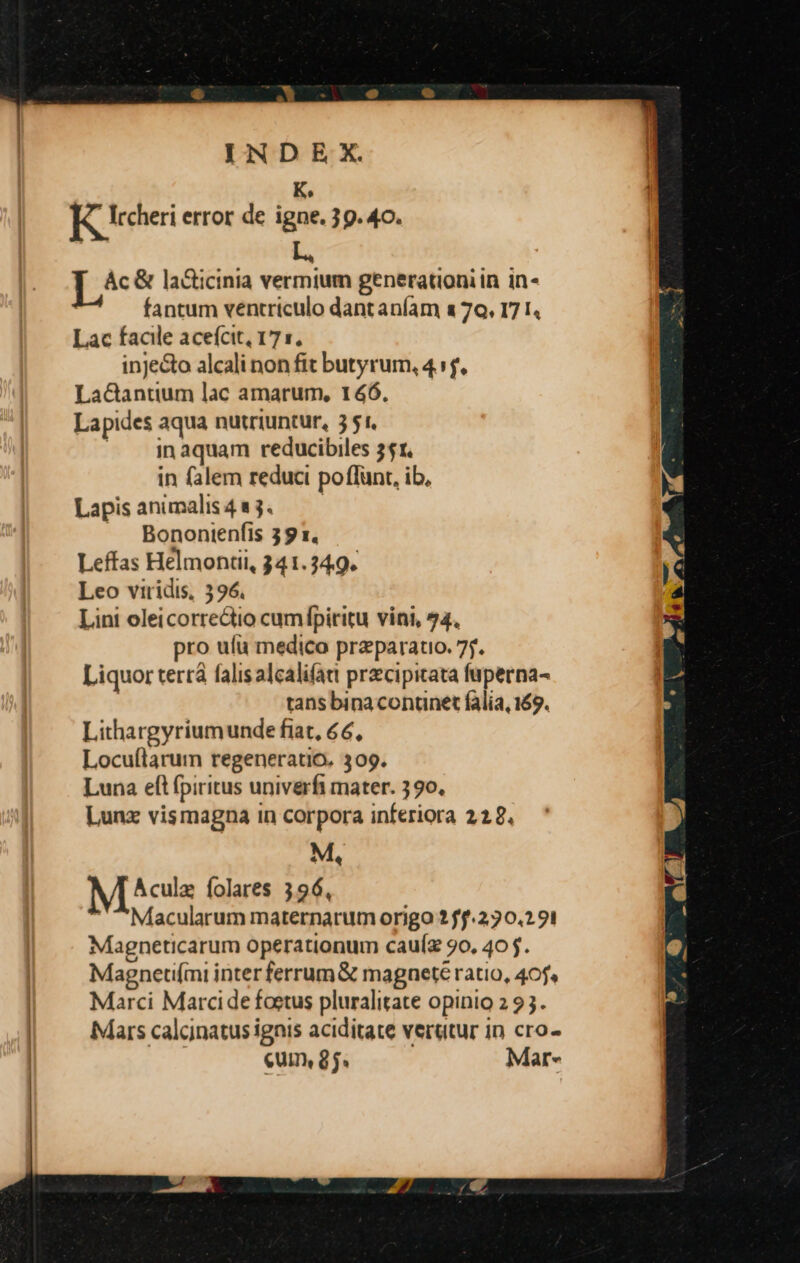 INDEX.
K.
KIrcheri error de igne. 39. 40.
L,
LAc & lacticinia vermium generationi in in-
fantum ventriculo dant anſam 170, 171,
Lac facile aceſcit, 171,
injecto alcali non fit butyrum, 415,
Lactantium lac amarum, 166.
Lapides aqua nutriuntur, 351,
in aquam reducibiles 351,
in ſalem reduci poſſunt, ib,
Lapis animalis 413.
Bononienſis 391,
Leffas Helmontii, 341. 349.
Leo viridis, 396.
Lini olei correctio cum ſpiritu vini, 74.
pro uſu medico præparatio. 75.
Liquor terrâ ſalis alcaliſati præcipitata ſuperna-
tans bina continet ſalia, 169.
Lithargyrium unde fiat, 66,
Locuſtarum regeneratio, 309.
Luna eſt ſpiritus univerſi mater. 390,
Lunæ vis magna in corpora inferiora 228,
M,
MAculæ ſolares 396,
Macularum maternarum origo 255. 290, 291
Magneticarum operationum cauſæ 90, 405.
Magnetiſmi inter ferrum & magnetē ratio, 405,
Marci Marci de fœtus pluralitate opinio 293.
Mars calcinatus ignis aciditate vertitur in cro-
cum, 85.
Mar-